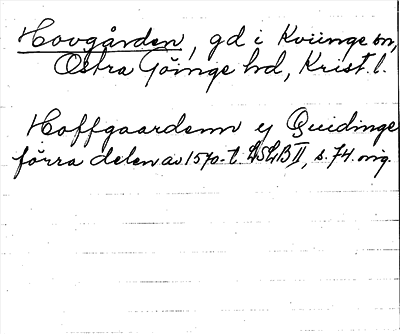 Hovgården, gd i Kviinge sn,
Östra Göinge hd, Krist. l.
Hoffgaardenn ej Quidinge
förra delen av 1570-t. LSLB II, s. 74. orig.